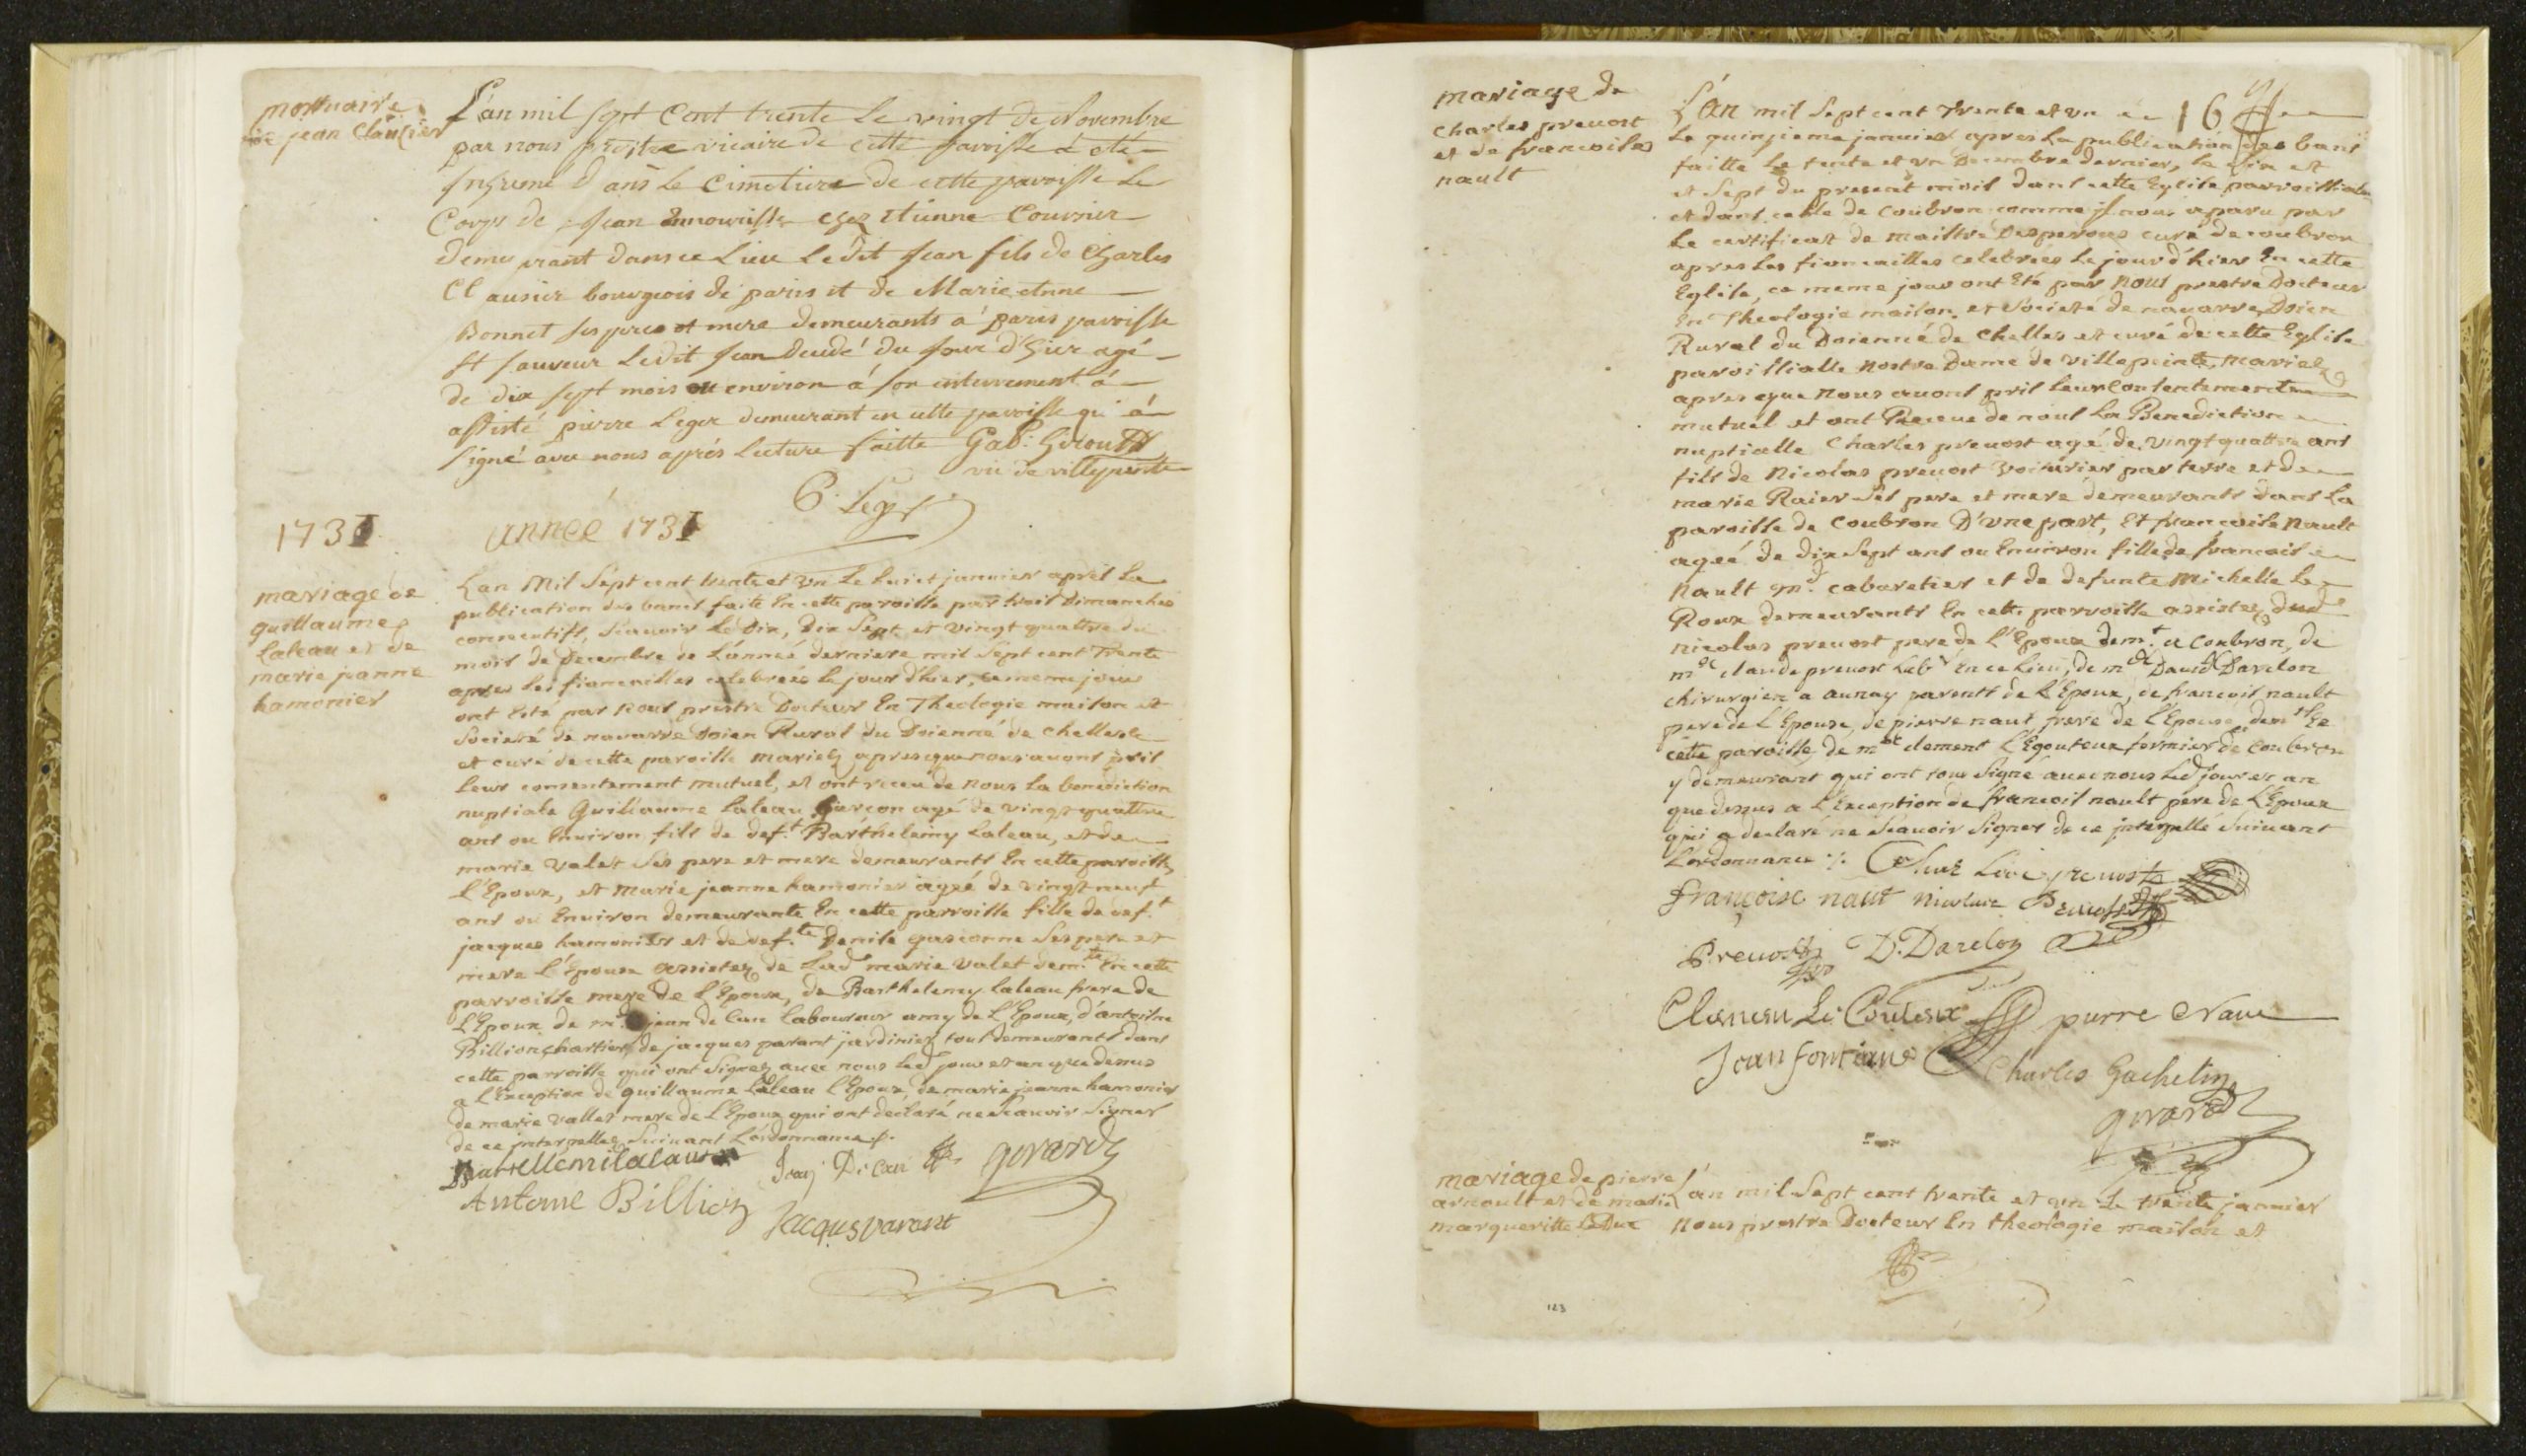 mortuaire
de jean Clausier
L'an mil sept Cent trente le vingt de Novembre
par nous prestre vicaire de cette paroisse a été
Inhumé dans le Cimetiere de cette paroisse le
Corps de Jean Ennourisse chez Etienne Couvrier
demeurant dans ce Lieu Ledit Jean fils de Charles
Clausier bourgeois de paris et de Marie Anne
Bonnet ses pere et mere demeurants a paris paroisse
St sauveur Ledit Jean decedé du Jour d'hier agé
de dix sept mois ou environ a son enterrement á
assisté pierre Leger demeurant en cette paroisse qui á
signé avec nous aprés lecture faitte Gab. Giroust
vic de villepinte
P. Leger
1731
année 1731
mariage de
guillaume
laleau et de
marie jeanne
hamonier
Lan Mil Sept cent trente et un le huict janvier apres la
publication des bancs faite En cette paroisse par trois dimanches
consecutifs, scavoir le dix, dix Sept et vingt quattre du
mois de Decembre de L'année derniere mil Sept cent Trente
apres les fiancailles celebrées le jour d'hier, ce meme jour
ont esté par nous prestre Docteur En Theologie maison et
Societé de navarre Doien Rural du Doienné de chelles
et curé de cette paroisse mariez apres que nous avons pris
leur consentement mutuel, et ont receu de nous la benediction
nuptiale Guillaume laleau garcon agé de vingt quattre
ans ou Environ fils de def.t Barthelemy Laleau, et de
marie valet Ses pere et mere demeurants En cette paroisse
l'Epoux, et marie jeanne hamonier agée de vingt neuf
ans ou Environ demeurante En cette parroisse fille de def.t
jacques hamonier et de def.te Denise gasconne Ses pere et
mere l'Epouse assistez de Lad marie valet dem.te En cette
parroisse mere de l'Epoux, de Barthelemy laleau frere de
L'Epoux de m.e jean de lan laboureur amy de L'Epoux, d'antoine
Billion chartier, de jacques parant jardinier tous demeurants dans
cette parroisse qui ont Signez avec nous led jour et an que dessus
a l'Exception de guillaume Laleau l'Epoux, de marie jeanne hamonier
de marie vallet mere de L'Epoux qui ont declaré ne Scavoir Signer
de ce interpellez Suivant L'ordonnance ./.
Bartellemi lalau Jean De lan girard
Antoine Billion
Jacques parant
mariage de
charles prevost
et de francoise
nault
16
L'an mil Sept cent trente et un
Le quinzieme janvier apres la publication des bans
faitte le trente et un Decembre dernier, le Six et
et Sept du present mois dans cette Eglise parroissialle
et dans celle de Coubron comme il nous a paru par
Le certificat de maistre Desperous curé de coubron
apres les fiancailles celebrées le jour d'hier En cette
Eglise, ce meme jour ont Eté par nous prestre Docteur
En Theologie maison et Societé de navarre, Doien
Rural du Doienné de Chelles et curé de cette Eglise
paroissialle nostre Dame de villepeinte, mariez
apres que nous avons pris leur Consentement
mutuel et ont Receue de nous la Benediction
nuptialle Charles prevost agé de vingt quattre ans
fils de Nicolas prevost voiturier par terre et de
marie Raier Ses pere et mere demeurants dans la
paroisse de Coubron D'une part, Et francoise Nault
ageé de dix Sept ans ou Environ fille de francois
Nault m.d cabaretier et de defunte Michelle le
Roux demeurants En cette parroisse assistez dud
nicolas prevost pere de L'Epoux dem.t a Coubron, de
m.e claude prevost Lab.r En ce lieu, de m.e David Davelon
chirurgien a aunay parents de L'Epoux, de francois nault
pere de L'Epouse, de pierre naut frere de l'Epouse dem.t En
cette paroisse de m.e clement L'Egouteux fermier de Coubron
y demeurant qui ont tous Signé avec nous led jour et an
que dessus a L'Exception de francois nault pere de L'Epouse
qui a declaré ne Scavoir Signer de ce interpellé Suivant
L'ordonnance ./.
françoise naut Nicolas Prevost
Prevost D. Davelon
Clement Le Couteux pierre Naut
Jean fontaine
Charles Gachelin
girard
mariage de pierre
arnoult et de marie
margueritte Le Duc
L'an mil Sept cent trente et un Le trente janvier
Nous prestre Docteur En theologie maison et
123